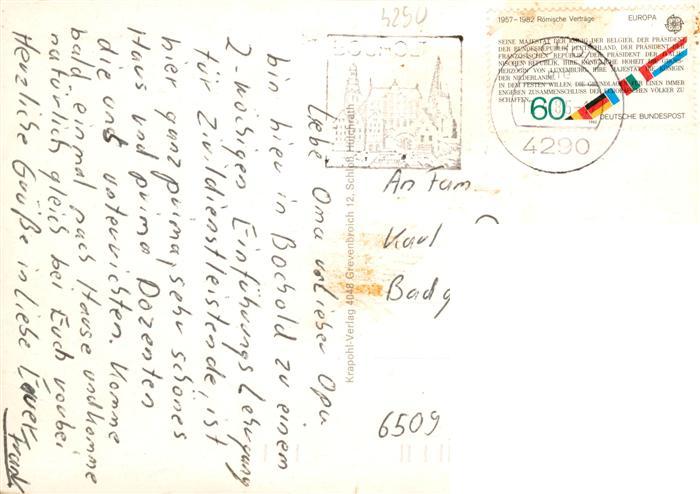 Liebe Oma und lieber Opa
bin hier in Bocholt zu einem
2 wöchigen Einführungslehrgang
für Zivildienstleistende, ist
hier ganz prima, sehr schönes
Haus und prima Dozenten
die uns unterrichten. Komme
bald einmal nach Hause und komme
natürlich gleich bei Euch vorbei
Herzliche Grüße in Liebe Euer
Frank
Krapohl-Verlag 4048 Grevenbroich 12, Schloß Hülchrath
4250
1957–1982 Römische Verträge EUROPA
SEINE MAJESTÄT DER KÖNIG DER BELGIER, DER PRÄSIDENT
DER BUNDESREPUBLIK DEUTSCHLAND, DER PRÄSIDENT DER
FRANZÖSISCHEN REPUBLIK, DER PRÄSIDENT DER ITALIE-
NISCHEN REPUBLIK, IHRE KÖNIGLICHE HOHEIT DIE GROSS-
HERZOGIN VON LUXEMBURG, IHRE MAJESTÄT DIE KÖNIGIN
DER NIEDERLANDE,
IN DEM FESTEN WILLEN, DIE GRUNDLAGEN FÜR EINEN IMMER
ENGEREN ZUSAMMENSCHLUSS DER EUROPÄISCHEN VÖLKER ZU
SCHAFFEN
60
DEUTSCHE BUNDESPOST
1982
4290
An Fam
Karl
Bad
6509